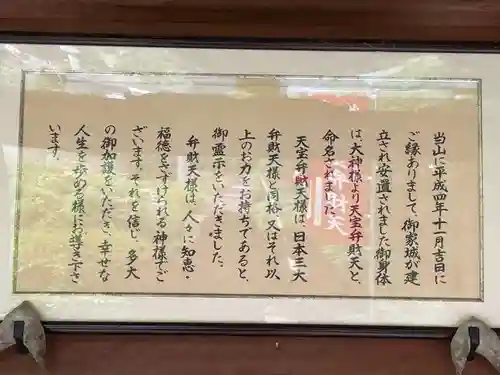 当山に平成四年十一月吉日に
ご縁ありまして、御家城が建
立され安置されました御身体
は、大神様より天宝弁財天と、
命名されました。
天宝弁財天様は、日本三大
弁財天様と同格、又はそれ以
上のお力をお持ちであると、
御霊示をいただきました。
弁財天様は、人々に知恵・
福徳をさずけられる神様でご
ざいます。それを信じ、多大
の御加護をいただき、幸せな
人生を歩める様にお導き下さ
います。
弁財天